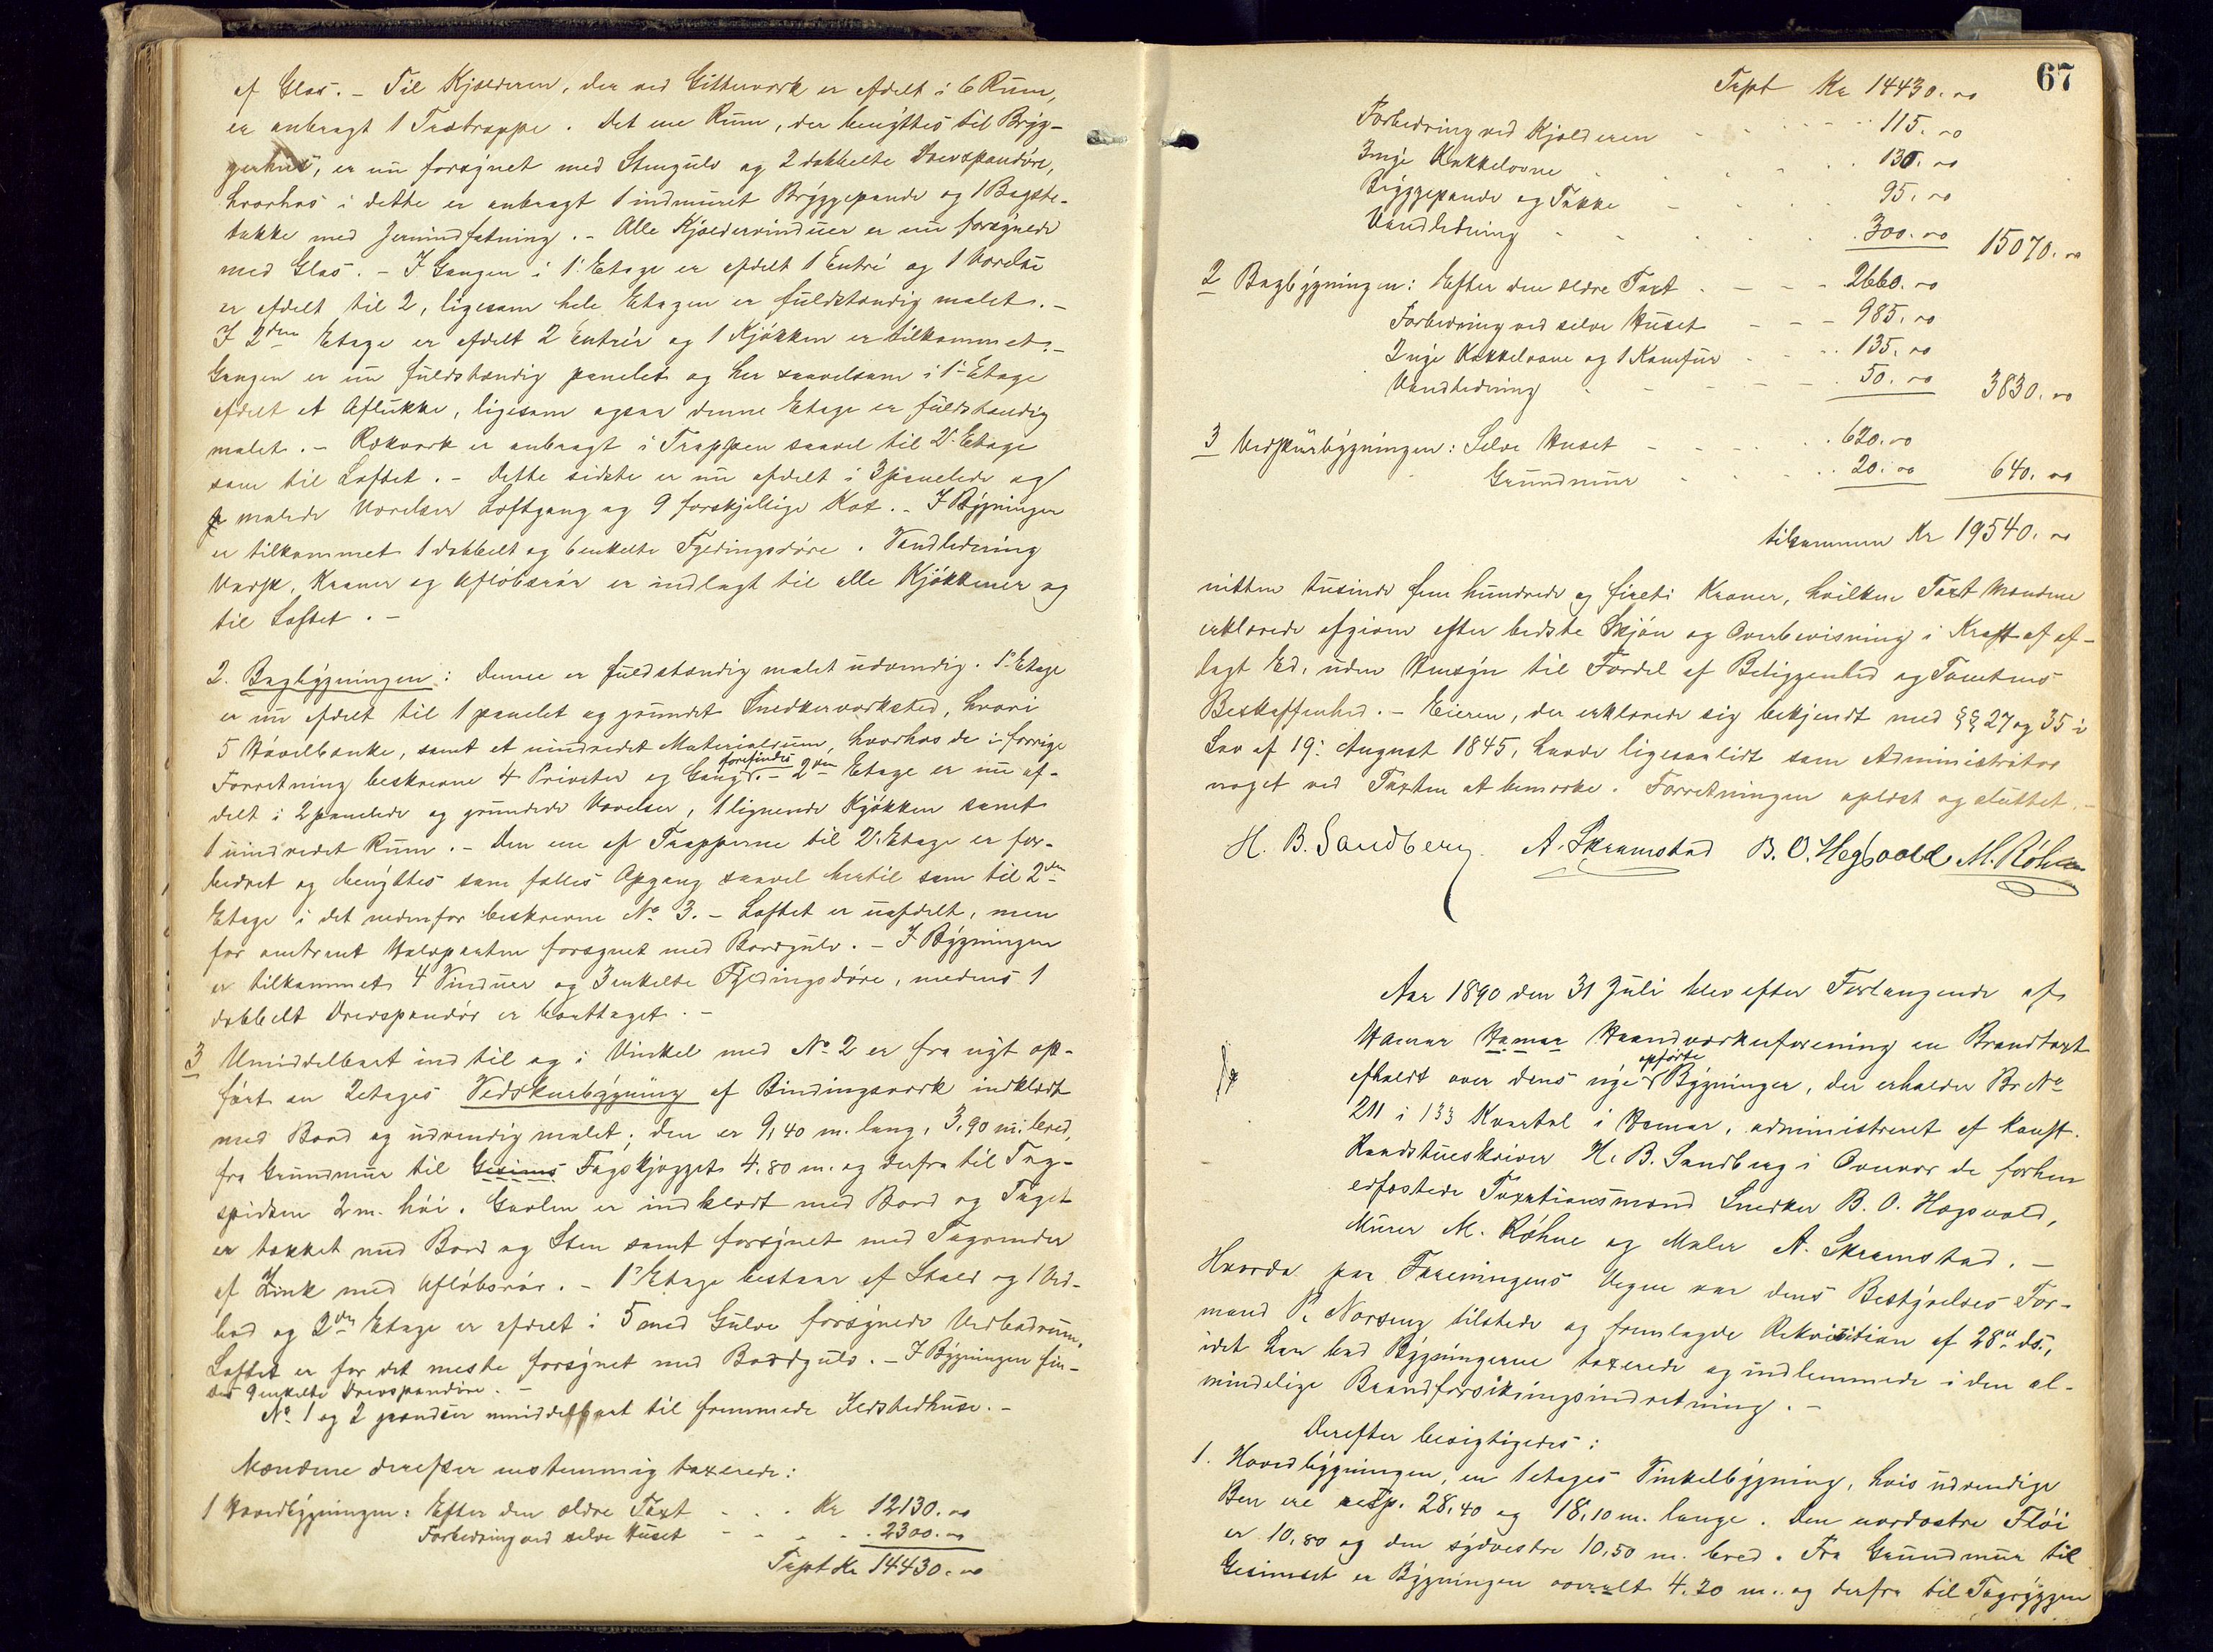 af Glas. – Til Kjælderen, der ved Gitterværk er afdelt i 6 Rum,
er anbragt 1 Trætrappe. Det ene Rum, der benyttes til Bryg-
gerhus, er nu forsynet med Stengulv og 2 dobbelte Drevspandøre,
hvorhos i dette er anbragt 1 indmuret Bryggepande og 1 Bagste-
takke med Jernindfatning. – Alle Kjældervinduer er nu forsynede
med Glas. – I Gangen i 1' Etage er afdelt 1 Entré og 1 Værelse
er afdelt til 2, ligesom hele Etagen er fuldstændig malet. –
I 2den Etage er afdelt 2 Entréer og 1 Kjøkken er tilkommet. –
Gangen er nu fuldstændig panelet og her saavelsom i 1' Etage
afdelt et Aflukke, ligesom ogsaa denne Etage er fuldstændig
malet. – Rækværk er anbragt i Trappen saavel til 2' Etage
som til Loftet. – Dette sidste er nu afdelt i 3 panelede og
malede Værelser Loftgang og 9 forskjellige Kot. – I Bygningen
er tilkommet 1 dobbelt og 6 enkelte Fyldingsdøre. Vandledning
Vask, Kraner og Afløbsrør er indlagt til alle Kjøkkener og
til Loftet. –
2. Bagbygningen: Denne er fuldstændig malet udvendig. 1' Etage
er nu afdelt til 1 panelet og grundet Snedkerværksted, hvori
5 Høvelbænke, samt et uindredet Materialrum, hvorhos de i forrige
Forretning beskrevne 4 Priveter og Gang forefindes. – 2den Etage er nu af-
delt i 2 panelede og grundede Værelser, 1 lignende Kjøkken samt
1 uindredet Rum. – Den ene af Trapperne til 2' Etage er for-
bedret og benyttes som fælles Opgang saavel hertil som til 2den
Etage i det nedenfor beskrevne No 3. – Loftet er uafdelt, men
for omtrent Halvparten forsynet med Bordgulv. – I Bygningen
er tilkommet 4 Vinduer og 3 enkelte Fyldingsdøre, medens 1
dobbelt Drevspandør er borttaget. –
3 Umiddelbart ind til og i Vinkel med No 2 er fra nyt op-
ført en 2etages Vedskurbygning af Bindingsværk indklædt
med Bord og udvendig malet; den er 9,40 m. lang, 3,90 m. bred,
fra Grundmur til Gesims Tagskjægget 4.80 m. og derfra til Tag-
spidsen 2 m. høi. Gavlen er indklædt med Bord og Taget
er tækket med Bord og Sten samt forsynet med Tagrender
af Zink med Afløbsrør. – 1' Etage bestaar af Stald og 1 Ved-
bod og 2den Etage er afdelt i 5 med Gulve forsynede Vedbodrum,
Loftet er for det meste forsynet med Bordgulv. – I Bygningen fin-
des 9 enkelte Drevspandøre. –
No 1 og 2 grændser umiddelbart til fremmede Ildstedhuse. –
Mændene derefter enstemmig taxerede:
1 Hovedbygningen: Efter den ældre Taxt - . . Kr 12130.00
Forbedring ved selve Huset - - - . 2300.00
Trspt Kr 14430.00
67
Trspt Kr 14430.00
Forbedring ved Kjælderen - - - 115.00
3 nye Kakkelovne . . . . 130.00
Bryggepande og Takke - . . . 95.00
Vandledning - . . . . 300.00 15070.00
2 Bagbygningen: Efter den ældre Taxt . - - - 2660.00
Forbedring ved selve Huset - - - 985.00
2 nye Kakkelovne og 1 Komfur - . . 135.00
Vandledning . - - - . 50.00 3830.00
3 Vedskurbygningen: Selve Huset - - - . . 620.00
Grundmur . . . . 20.00 640.00
tilsammen Kr 19540.00
nitten tusinde fem hundrede og fireti Kroner, hvilken Taxt Mændene
erklærede afgiven efter bedste Skjøn og Overbevisning i Kraft af af-
lagt Ed, uden Hensyn til Fordel af Beliggenhed og Tomtens
Beskaffenhed. – Eieren, der erklærede sig bekjendt med §§ 27 og 35 i
Lov af 19' August 1845, havde ligesaalidt som Administrator
noget ved Taxten at bemærke. Forretningen oplæst og sluttet. –
H. B. Sandberg. A. Skramstad B. O. Hegsvold M. Røhne
Aar 1890 den 31 Juli blev efter Forlangende af
Hamar Hamar Haandværkerforening en Brandtaxt
afholdt over dens nye opførte Bygninger, der erholder Br No
211 i 133 Kvartal i Hamar, administreret af const.
Raadstueskriver H. B. Sandberg i Overvær de forhen
edfæstede Taxationsmænd Snedker B. O. Hegsvold,
Murer M. Røhne og Maler A. Skramstad. –
Hvorda paa Foreningens Vegne var dens Bestyrelses For-
mand P. Norseng tilstede og fremlagde Rekvisition af 28' ds.,
idet han bad Bygningerne taxerede og indlemmede i den al-
mindelige Brandforsikringsindretning. –
Derefter besigtigedes:
1. Hovedbygningen, en 1 etages Vinkelbygning, hvis udvendige
Ben ere resp. 28,40 og 18,10 m. lange. Den nordostre Fløi
er 10,80 og den sydvestre 10,50 m. bred. Fra Grundmur til
Gesimset er Bygningen overalt 4.20 m. og derfra til Tagryggen